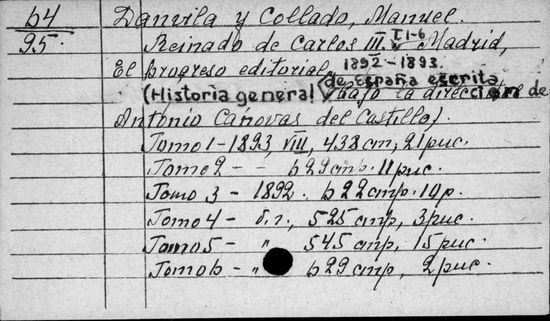 64
95.
Danvila y Collado, Manuel.
Reinado de Carlos III. T. 1-6 Madrid,
El progreso editorial, 1892-1893.
(Historia general de España escrita bajo la dirección de
Antonio Cánovas del Castillo).
Tomo 1 - 1893, VIII, 438 стр, 21 рис.
Tomo 2 - - 629 стр. 11 рис.
Tomo 3 - 1892. 622 стр. 10 р.
Tomo 4 - б.г., 525 стр, 3 рис.
Tomo 5 - " 545 стр, 15 рис.
Tomo 6 - " 629 стр, 2 рис.